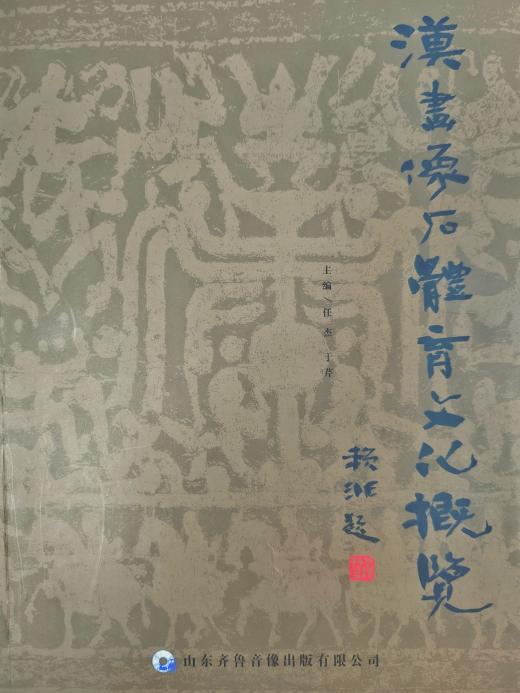 漢畫像石體育文化概覽
主编/任杰 于芹
赖非题
山东齐鲁音像出版有限公司